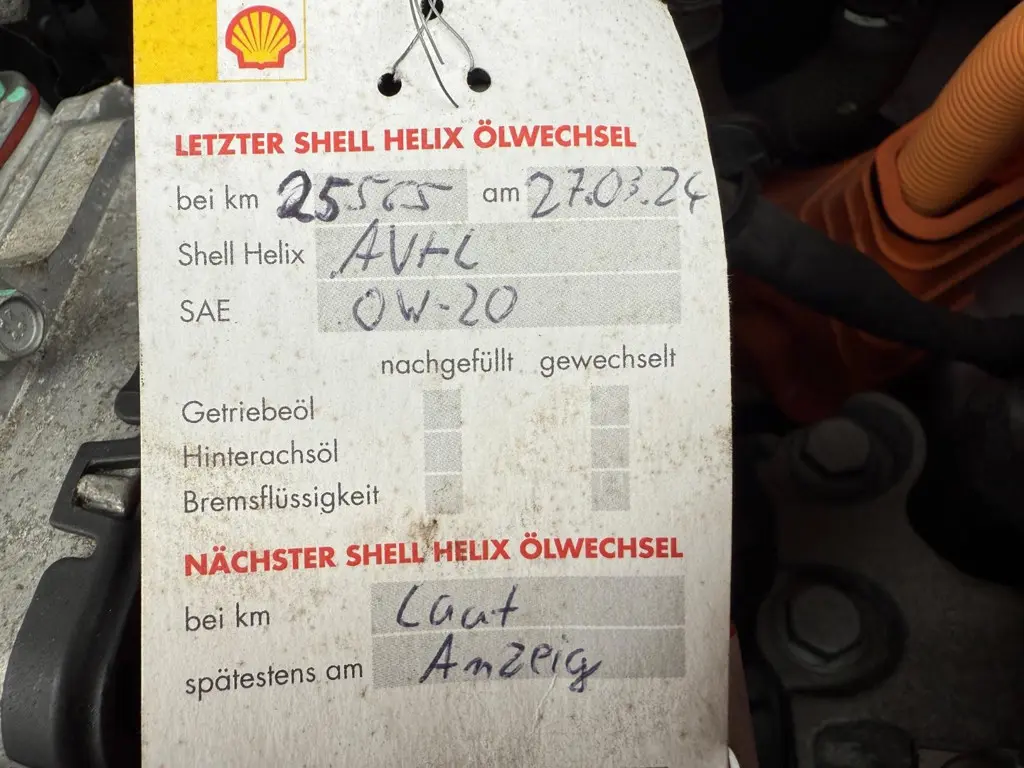 LETZTER SHELL HELIX ÖLWECHSEL
bei km 25565 am 27.03.24
Shell Helix AV-L
SAE 0W-20
nachgefüllt gewechselt
Getriebeöl
Hinterachsöl
Bremsflüssigkeit
NÄCHSTER SHELL HELIX ÖLWECHSEL
bei km Laut
spätestens am Anzeig